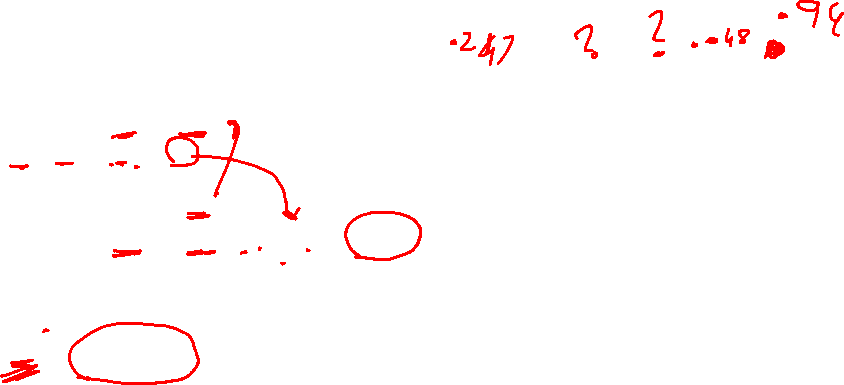 .247 ? ? .48 .94